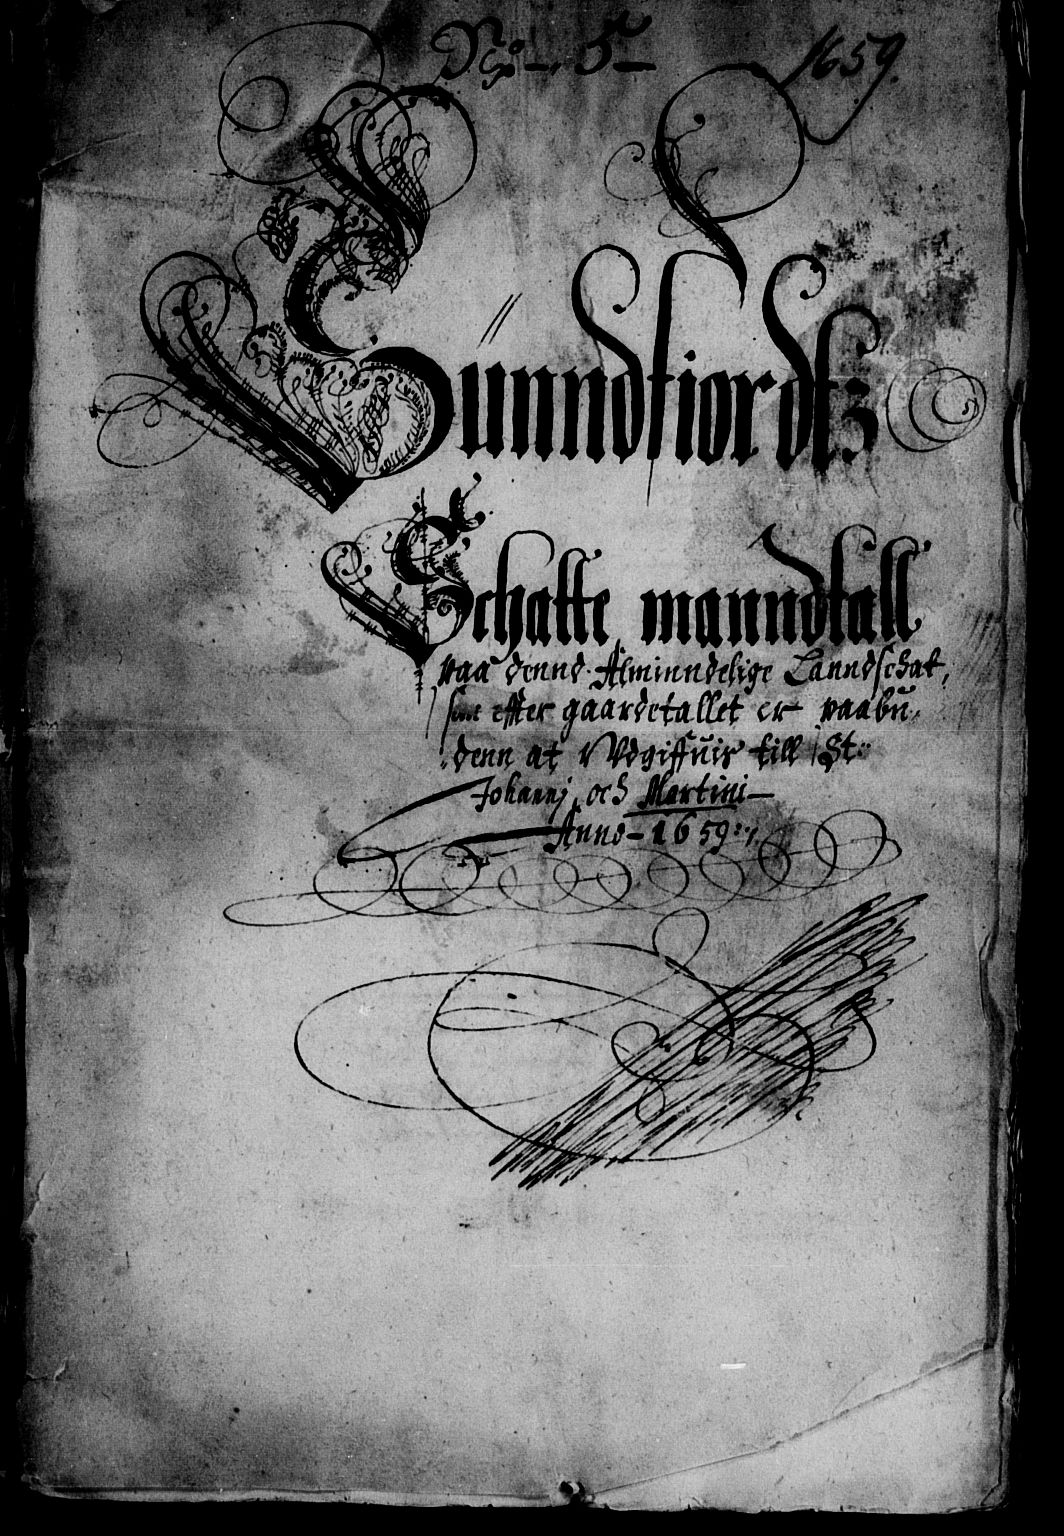 No. 5 1659.
Sünndfiordtz
Schatte manndtall
paa dennd Alminndelige Lanndschat,
som effter gaardetallet er paabü,
denn at Vdgiffuis till St:
Johannj, och Martini
Anno 1659